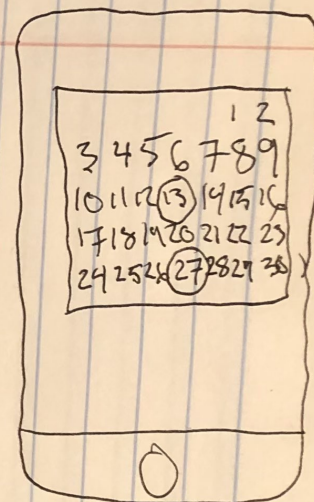 1 2
3 4 5 6 7 8 9
10 11 12 13 14 15 16
17 18 19 20 21 22 23
24 25 26 27 28 29 30